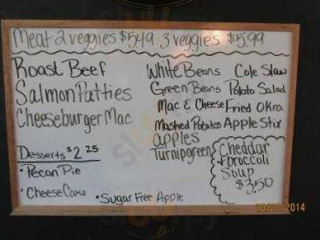 Meat 2 veggies $5.49 3 veggies $5.99
Roast Beef
Salmon Patties
Cheeseburger Mac
Desserts $2.25
• Pecan Pie
• Cheese Cake
• Sugar Free Apple
White Beans
Green Beans
Mac & Cheese
Mashed Potatos
apples
Turnip greens
Cole Slaw
Potato Salad
Fried Okra
Apple Stix
Cheddar
+ broccoli
Soup
$3.50
2014